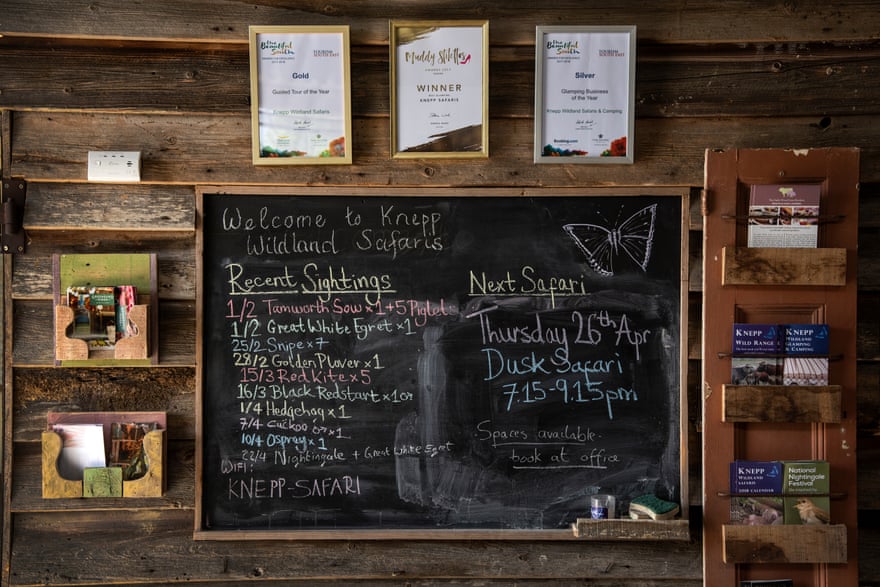 the Beautiful South
TOURISM SOUTH EAST
AWARDS FOR EXCELLENCE
2017-2018
Gold
Guided Tour of the Year
Knepp Wildland Safaris
Muddy Stilettos
AWARDS 2017
WINNER
KNEPP SAFARIS
the Beautiful South
TOURISM SOUTH EAST
AWARDS FOR EXCELLENCE
2017-2018
Silver
Glamping Business
of the Year
Knepp Wildland Safaris & Camping
Booking.com
Welcome to Knepp
Wildland Safaris
Recent Sightings
1/2 Tamworth Sow x 1 + 5 Piglets
1/2 Great White Egret x 1
25/2 Snipe x 7
28/2 Golden Plover x 1
15/3 Red Kite x 5
16/3 Black Redstart x 1 or
1/4 Hedgehog x 1
7/4 Cuckoo or x 1
10/4 Osprey x 1
22/4 Nightingale + Great White Egret
WiFi:
KNEPP-SAFARI
Next Safari
Thursday 26th Apr
Dusk Safari
7.15-9.15pm
Spaces available-
book at office
KNEPP
WILD RANGE
KNEPP
WILDLAND
GLAMPING
& CAMPING
KNEPP
WILDLAND
SAFARIS
2018 CALENDAR
National Nightingale
Festival